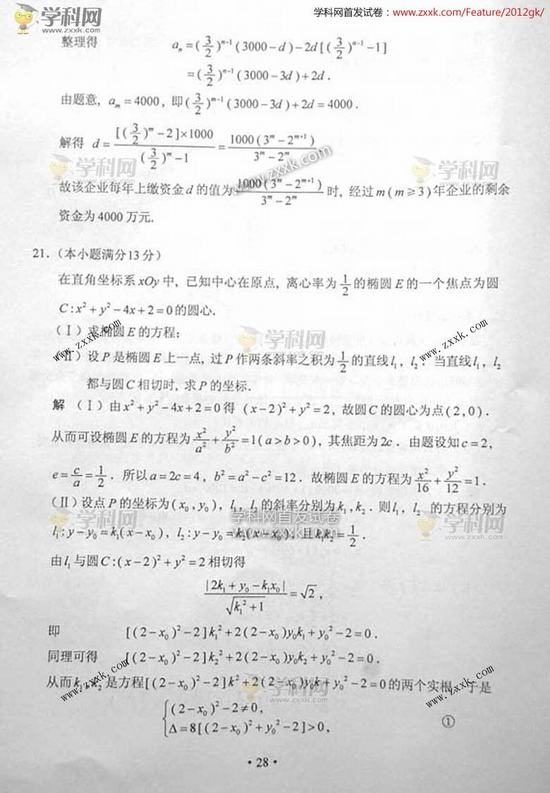 学科网首发试卷：www.zxxk.com/Feature/2012gk/
整理得 aₙ=(3/2)ⁿ⁻¹(3000-d)-2d[(3/2)ⁿ⁻¹-1]
=(3/2)ⁿ⁻¹(3000-3d)+2d.
由题意, aₘ=4000, 即(3/2)ᵐ⁻¹(3000-3d)+2d=4000.
解得 d=[(3/2)ᵐ-2]×1000/((3/2)ᵐ-1)=1000(3ᵐ-2ᵐ⁺¹)/(3ᵐ-2ᵐ).
故该企业每年上缴资金d的值为1000(3ᵐ-2ᵐ⁺¹)/(3ᵐ-2ᵐ)时, 经过m(m≥3)年企业的剩余
资金为4000万元.
21.（本小题满分13分）
在直角坐标系xOy中, 已知中心在原点, 离心率为1/2的椭圆E的一个焦点为圆
C:x²+y²-4x+2=0的圆心.
(Ⅰ) 求椭圆E的方程;
(Ⅱ) 设P是椭圆E上一点, 过P作两条斜率之积为1/2的直线l₁, l₂. 当直线l₁, l₂
都与圆C相切时, 求P的坐标.
解 (Ⅰ) 由x²+y²-4x+2=0得 (x-2)²+y²=2, 故圆C的圆心为点(2,0).
从而可设椭圆E的方程为x²/a²+y²/b²=1(a>b>0), 其焦距为2c. 由题设知c=2,
e=c/a=1/2. 所以a=2c=4, b²=a²-c²=12. 故椭圆E的方程为x²/16+y²/12=1.
(Ⅱ) 设点P的坐标为(x₀,y₀), l₁, l₂的斜率分别为k₁, k₂. 则l₁, l₂的方程分别为
l₁:y-y₀=k₁(x-x₀), l₂:y-y₀=k₂(x-x₀), 且k₁k₂=1/2.
由l₁与圆C:(x-2)²+y²=2相切得
|2k₁+y₀-k₁x₀|/√(k₁²+1)=√2,
即 [(2-x₀)²-2]k₁²+2(2-x₀)y₀k₁+y₀²-2=0.
同理可得 [(2-x₀)²-2]k₂²+2(2-x₀)y₀k₂+y₀²-2=0.
从而k₁, k₂是方程[(2-x₀)²-2]k²+2(2-x₀)y₀k+y₀²-2=0的两个实根. 于是
{(2-x₀)²-2≠0,
Δ=8[(2-x₀)²+y₀²-2]>0, ①
·28·
学科网
www.zxxk.com
学科网首发试卷